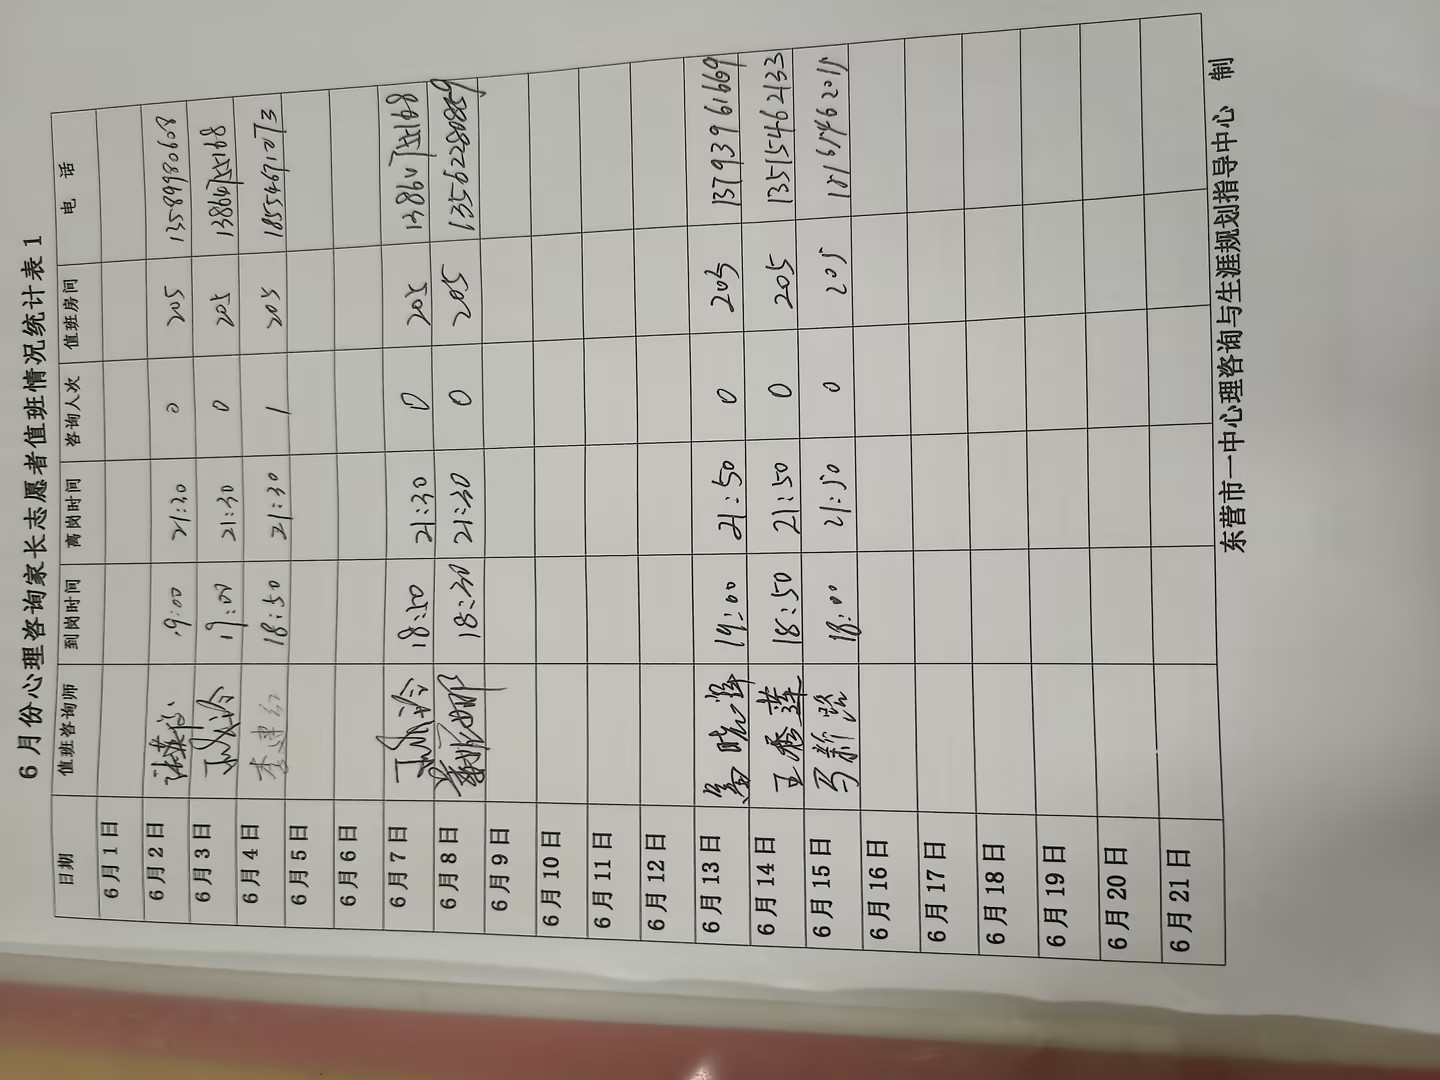 6月份心理咨询家长志愿者值班情况统计表1
日期 值班咨询师 到岗时间 离岗时间 咨询人次 值班房间 电 话
6月1日
6月2日 21:30 0 205 13589980608
6月3日 19:00 21:30 0 205
6月4日 李建红 18:50 21:30 1 205 18554671073
6月5日
6月6日
6月7日 18:50 21:30 0 205
6月8日 18:30 21:30 0 205
6月9日
6月10日
6月11日
6月12日
6月13日 19:00 21:50 0 205 13793961669
6月14日 王秀莲 18:50 21:50 0 205 13515462133
6月15日 18:00 21:50 0 205
6月16日
6月17日
6月18日
6月19日
6月20日
6月21日
东营市一中心理咨询与生涯规划指导中心 制